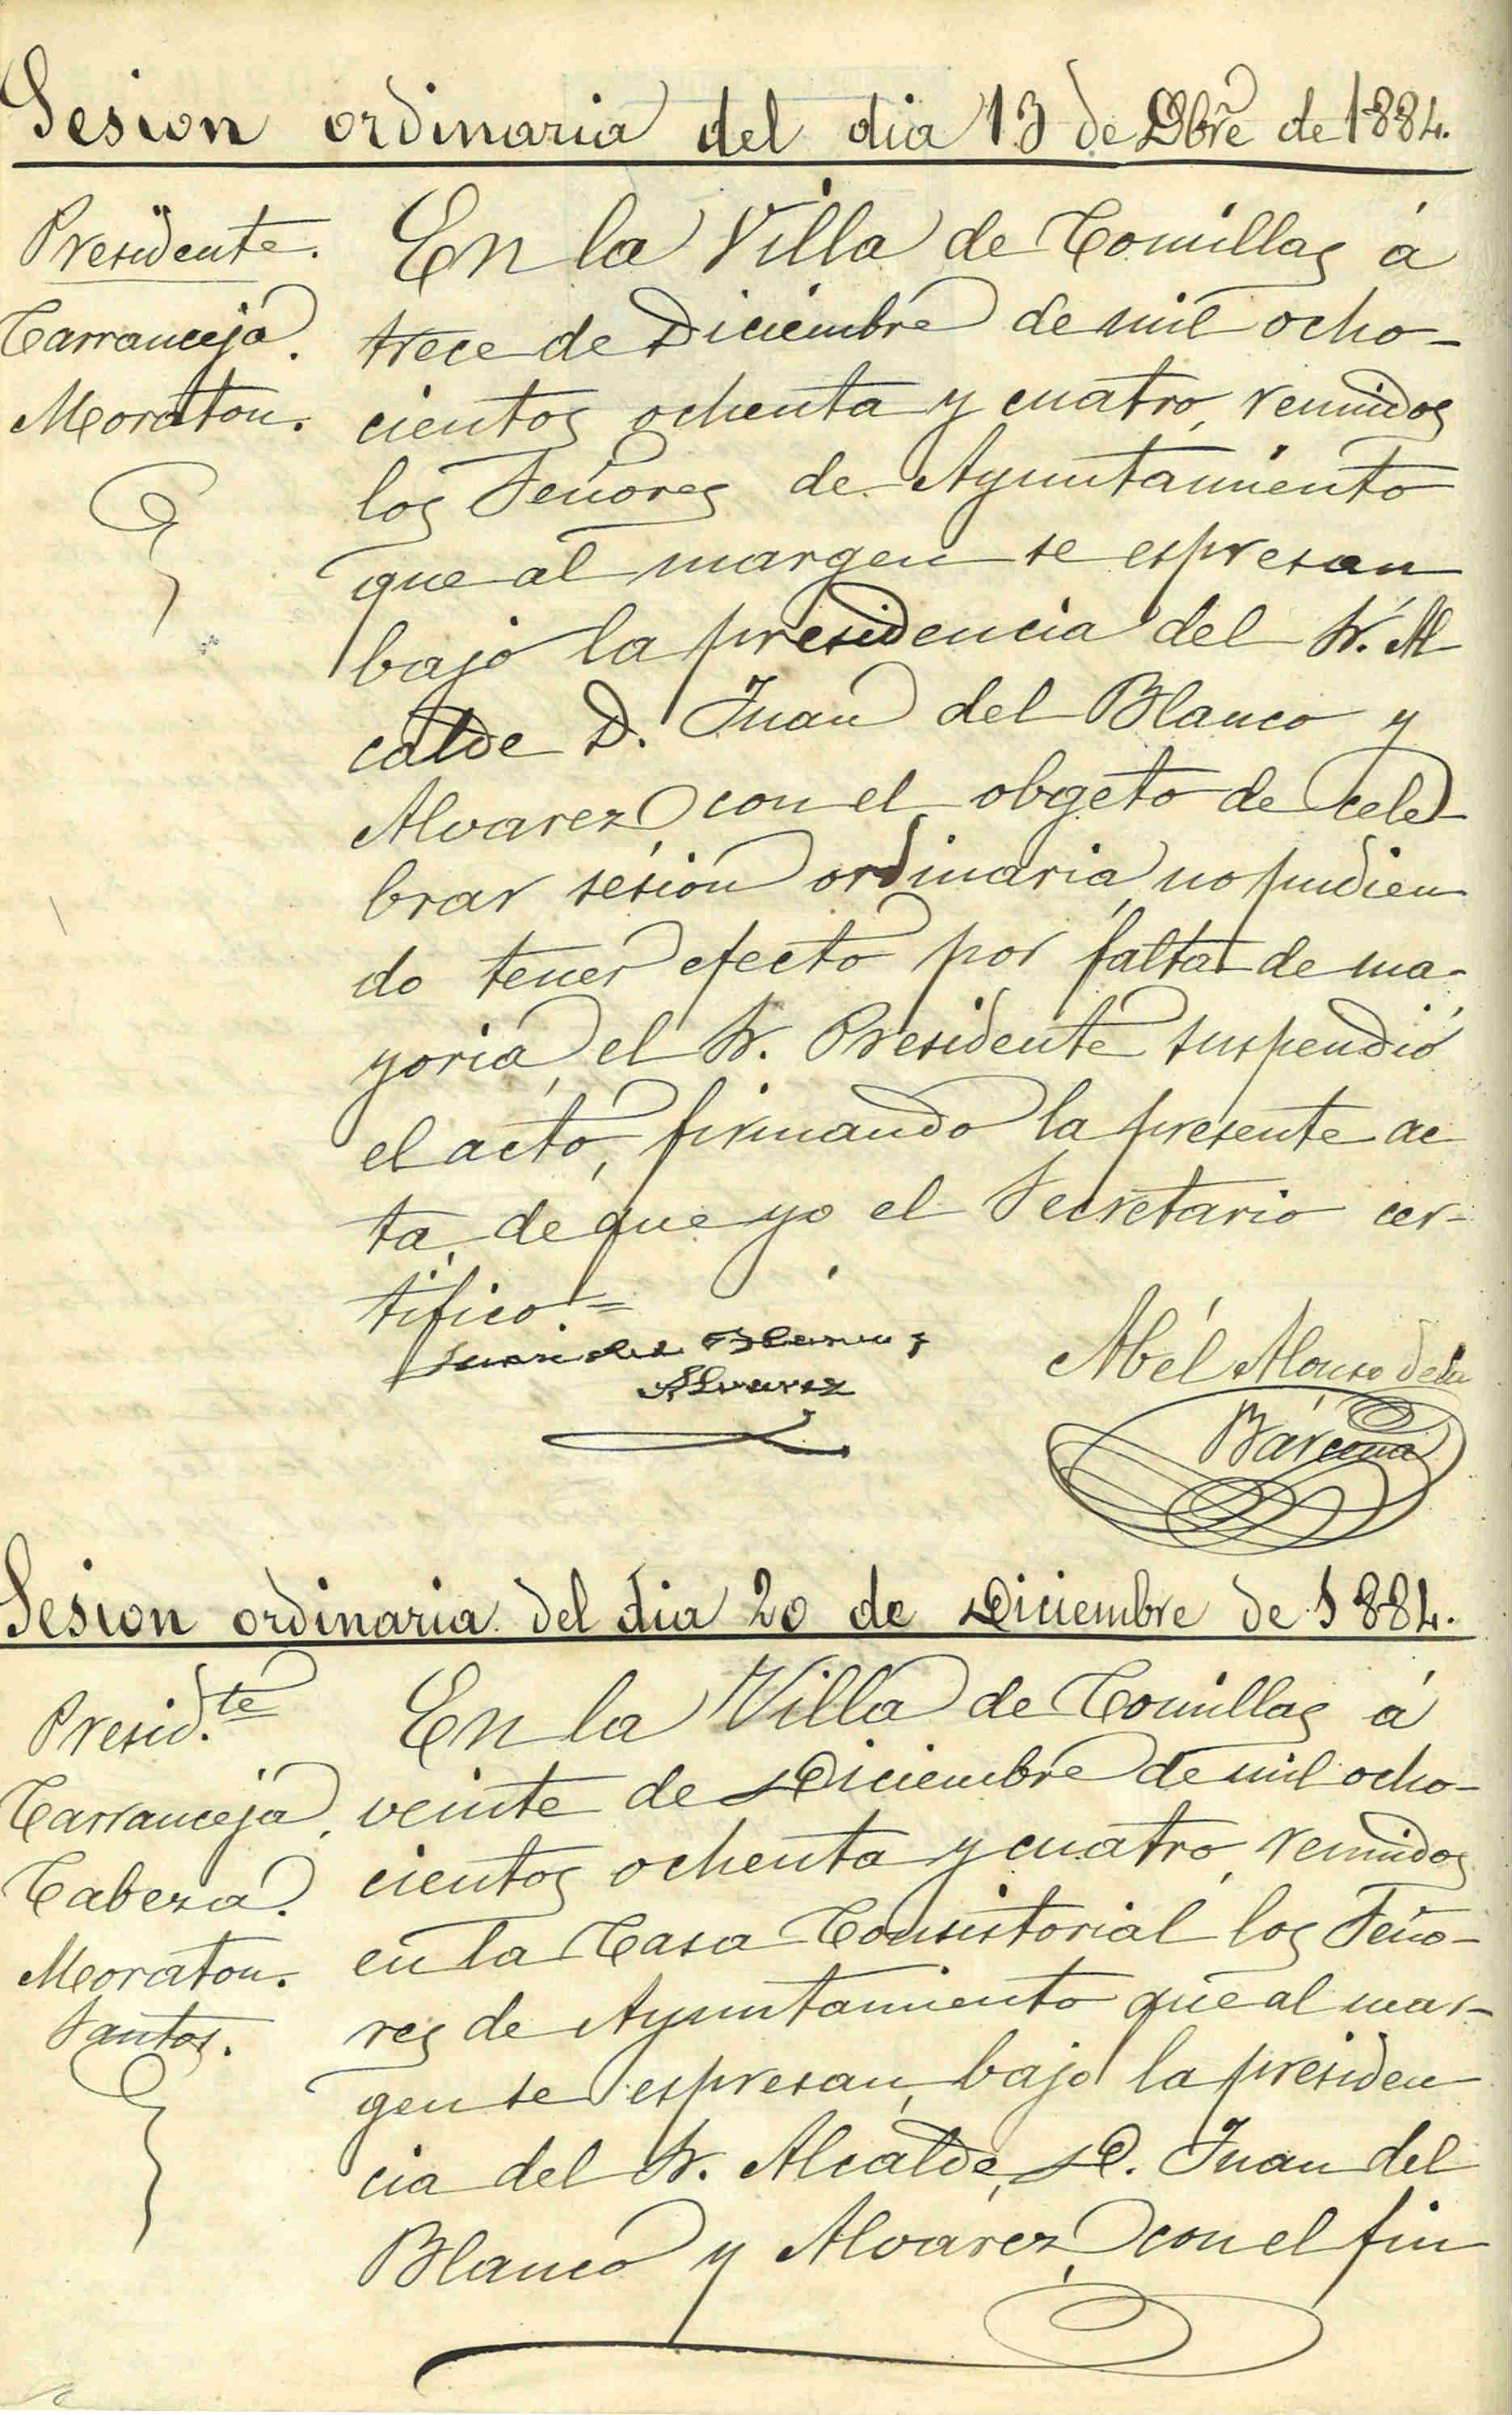 Sesion ordinaria del dia 13 de Dbre de 1884.
Presidente.
Carranceja.
Moraton.
En la Villa de Comillas á
trece de Diciembre de mil ocho-
cientos ochenta y cuatro, reunidos
los Señores de Ayuntamiento
que al margen se espresan
bajo la presidencia del Sr. Al
calde D. Juan del Blanco y
Alvarez, con el obgeto de cele
brar sesión ordinaria, no pudien
do tener efecto por falta de ma-
yoria, el Sr. Presidente suspendió
el acto, firmando la presente ac
ta, de que yo el Secretario cer-
tifico.=
Juan del Blanco y
Alvarez
Abél Alonso de la
Bárcena
Sesion ordinaria del dia 20 de Diciembre de 1884.
Presid.te
Carranceja,
Cabeza.
Moraton.
Santos.
En la Villa de Comillas á
veinte de Diciembre de mil ocho-
cientos ochenta y cuatro, reunidos
en la Casa Consistorial los Seño-
res de Ayuntamiento que al mar-
gen se espresan, bajo la presiden
cia del Sr. Alcalde, D. Juan del
Blanco y Alvarez, con el fin